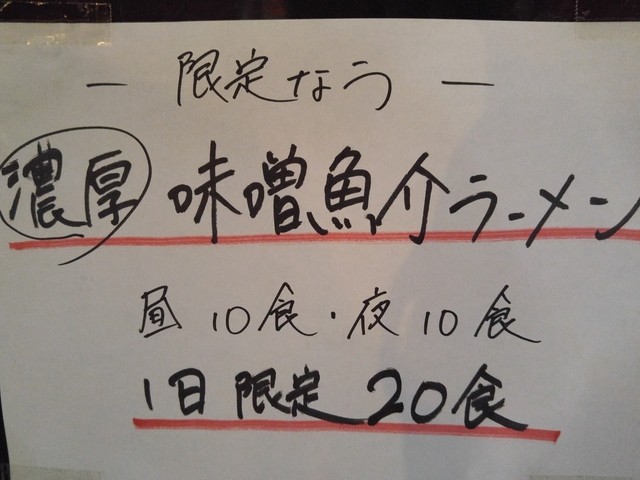 ― 限定なう ―
濃厚 味噌魚介ラーメン
昼10食・夜10食
1日限定 20食